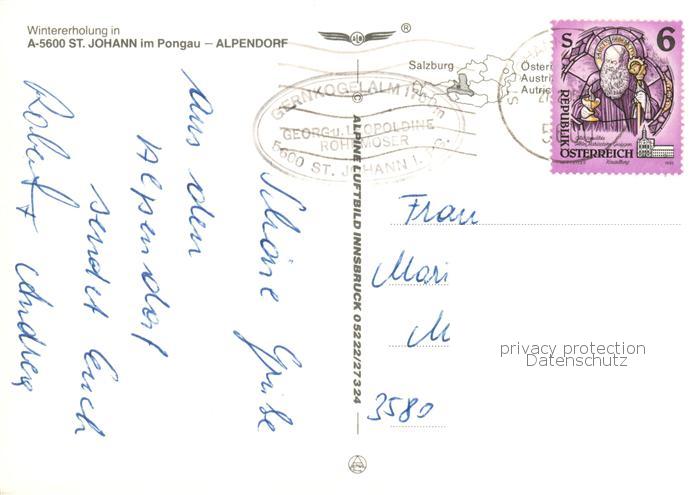 Wintererholung in
A-5600 ST. JOHANN im Pongau – ALPENDORF
ALB
®
Salzburg
Österr
Austri
Autric
GERNKOGELALM
GEORG u. LEOPOLDINE
ROHRMOSER
5600 ST. JOHANN I.
S 6
REPUBLIK
ÖSTERREICH
© ALPINE LUFTBILD INNSBRUCK 05222/27324
Schöne Grüße
Aus den
Alpendorf
sendet Euch
Robert + Andrea
Frau
Mari
M
3580
privacy protection
Datenschutz